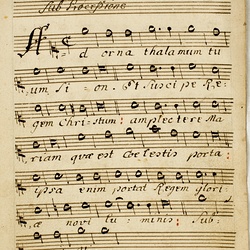 Sub Processione
Ad orna thalamum tu
um Si - on. Et suscipe Re-
gem Chri-stum: amplecteri Ma
riam quæ est Coelestis porta:
ipsa enim portat Regem glori
æ novi lu - minis: Sub-